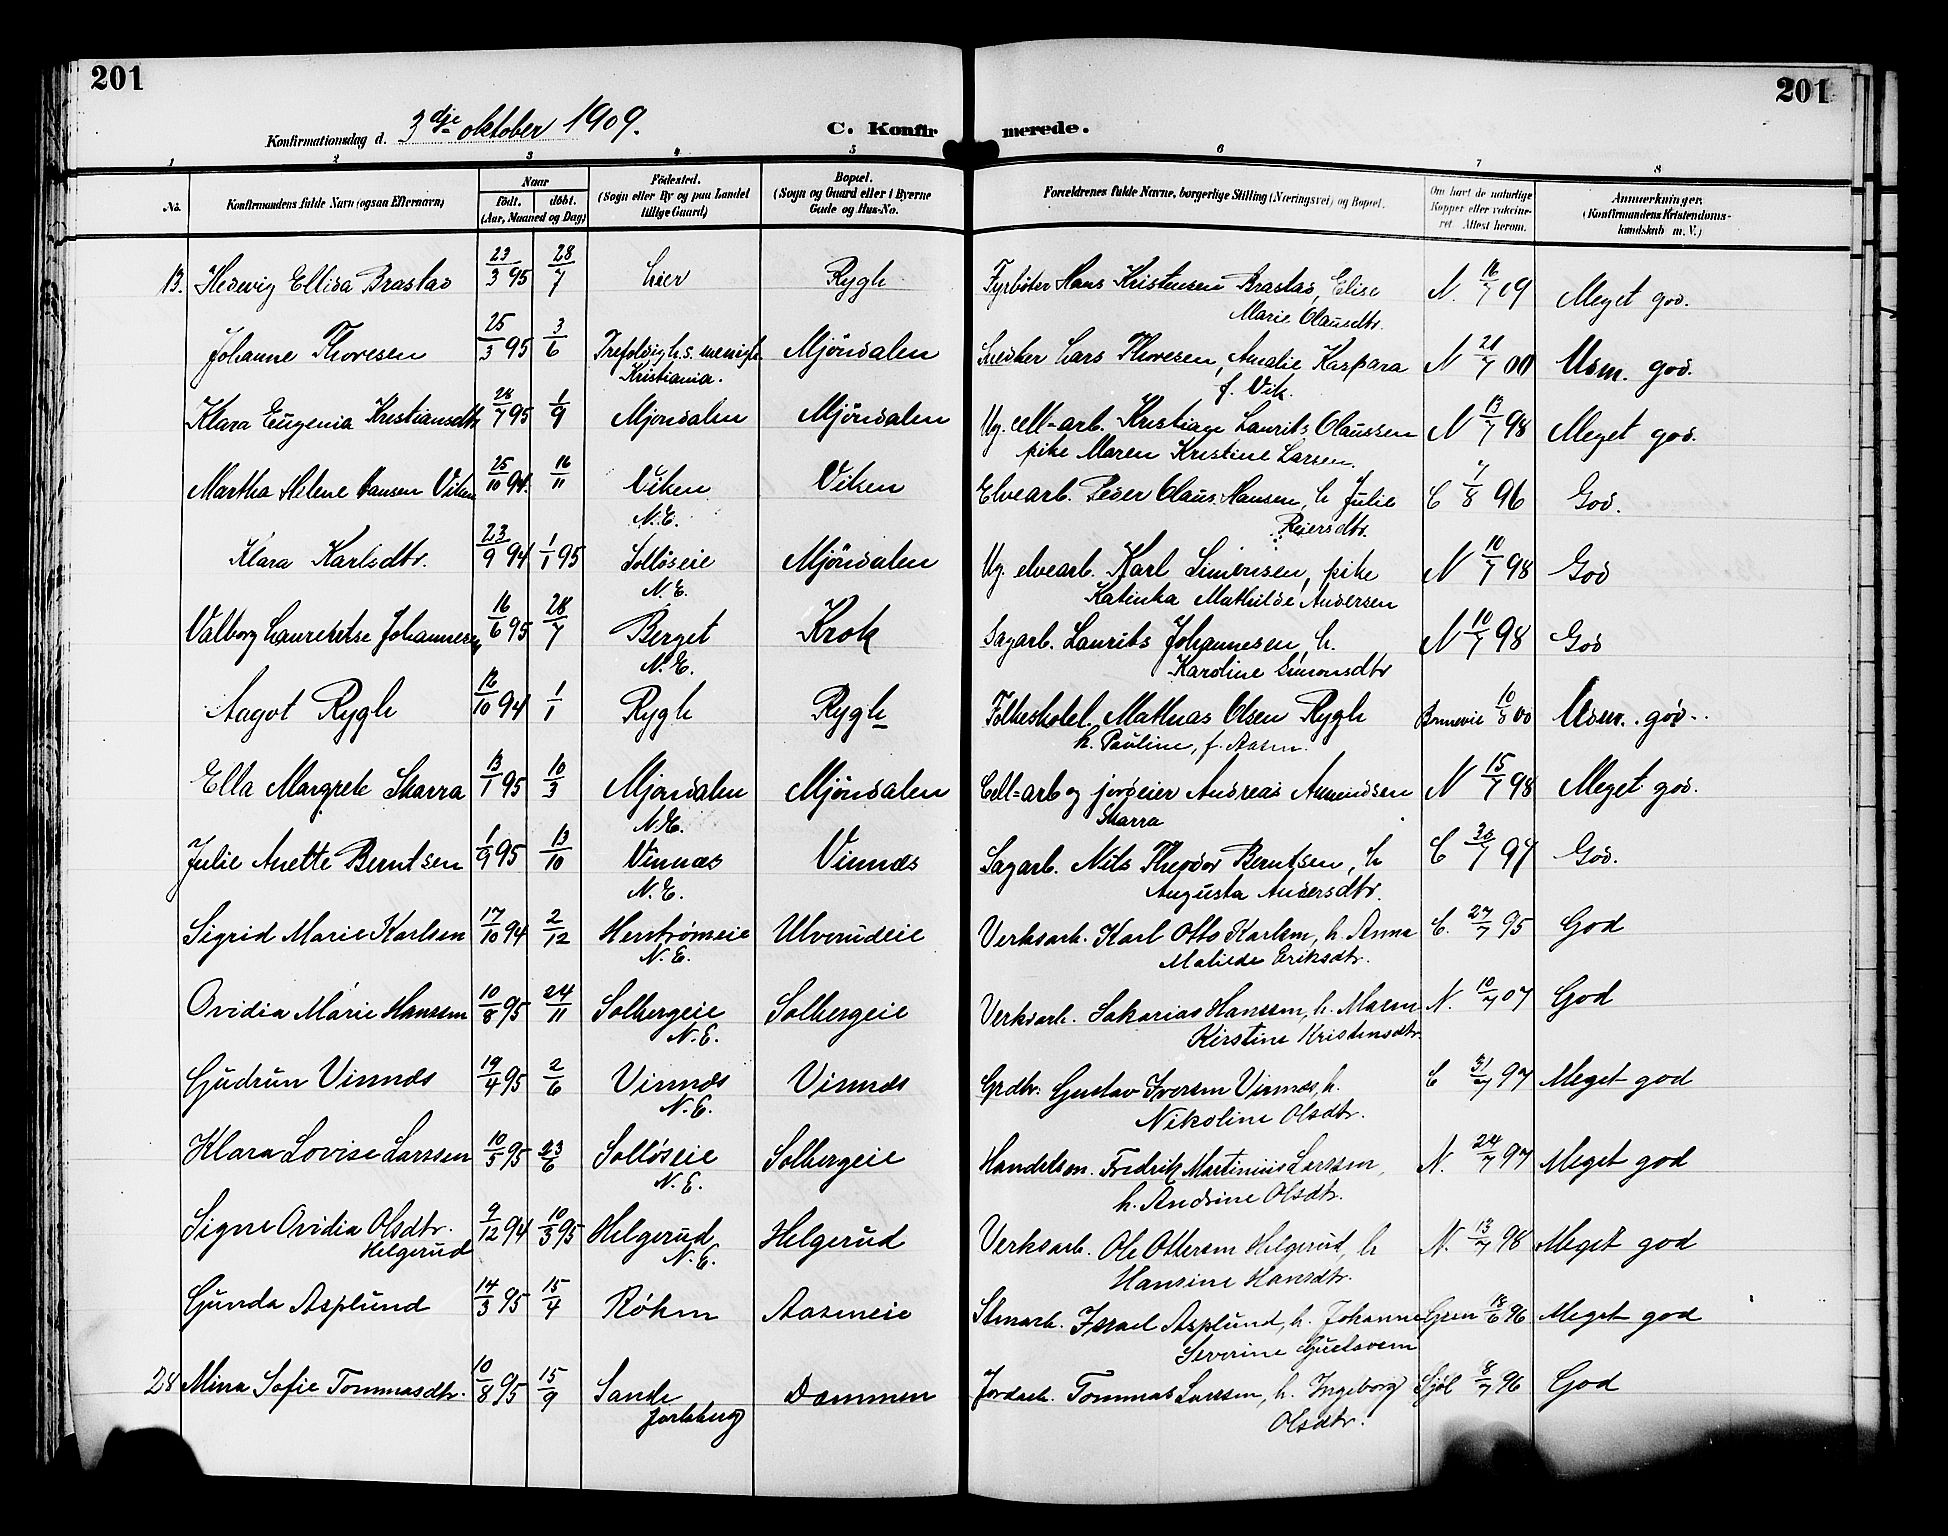 201
201
Konfirmationsdag d. 3dje oktober 1909.
C. Konfirmerede.
1 2 3 4 5 6 7 8
No. Konfirmandens fulde Navn (ogsaa Efternavn) Naar Født. døbt. (Aar, Maaned og Dag) Fødested. (Sogn eller By og paa Landet tillige Gaard) Bopæl. (Sogn og Gaard eller i Byerne Gade og Hus-No. Forældrenes fulde Navne, borgerlige Stilling (Næringsvei) og Bopæl. Om havt de naturlige Kopper eller vakcineret. Attest herom. Anmærkninger. (Konfirmandens Kristendomskundskab m. V.)
13. Hedevig Ellida Brastad 23/3 95 28/7 Lier Rygh Fyrbøter Hans Kristensen Brastad, Elise N. 16/7 09 Meget god.
Marie Olausdtr.
Johanne Thoresen 25/3 95 3/6 Trefoldigh.s. menigh. Mjöndalen Snedker Lars Thoresen, Amalie Kaspara N 21/7 00 Usm. god.
Kristiania. f. Vik.
Klara Eugenia Kristiansdtr 28/7 95 1/9 Mjöndalen Mjöndalen Ug. cell-arb. Kristian Laurits Olaussen N 13/7 98 Meget god.
pike Maren Kristine Larsen.
Martha Helene Hansen Viken 25/10 94. 16/11 Viken Viken Elvearb. Peder Olaus Hansen, h Julie C 7/8 96 God.
N.E. Reiersdtr.
Klara Karlsdtr. 23/9 94 1/1 95 Solløseie Mjöndalen Ug. elvearb. Karl Simensen, pike N 10/7 98 God
N.E. Katinka Mathilde Andersen
Valborg Lauretitse Johannesen 16/6 95 28/7 Berget Krok Sagarb. Laurits Johannesen, h. N 10/7 98 God
N.E. Karoline Simonsdtr
Aagot Rygh 16/10 94 1/1 Rygh Rygh Folkeskolel. Mathias Olsen Rygh 10/ 00 Usm. god.
h. Pauline, f. Aasen.
Ella Margrete Skarra 13/1 95 10/3 Mjöndalen Mjöndalen Cell-arb og jordeier Andreas Amundsen N 15/7 98 Meget god.
N.E. Skarra
Julie Anette Berntsen 1/9 95 13/10 Vinnæs Vinnæs Sagarb. Nils Theodor Berntsen, h C 30/7 97 God.
N.E. Augusta Andersdtr.
Sigrid Marie Karlsen 17/10 94 2/12 Herstrømeie Ulverudeie Verksarb. Karl Otto Karlsen, h. Anna C. 27/7 95 God
N.E. Matilde Eriksdtr.
Ovidia Marie Hanssen 10/8 95 24/11 Solbergeie Solbergeie Verksarb. Sakarias Hanssen, h. Maren N. 10/7 07 God
N.E. Kirstine Kristensdtr.
Gudrun Vinnæs 19/4 95 2/6 Vinnæs Vinnæs Grdbr. Gustav Iversen Vinnæs, h. C 31/7 97 Meget god
N.E. Nikoline Olsdtr.
Klara Lovise Larssen 10/5 95 23/6 Solløseie Solbergeie Handelsm. Fredrik Martinius Larssen, N. 24/7 97 Meget god
N.E. h. Andrine Olsdtr.
Signe Ovidia Olsdtr. 9/12 94 10/3 95 Helgerud Helgerud Verksarb. Ole Ottersen Helgerud, h N. 13/7 98 Meget god
Helgerud N.E. Hansine Hansdtr.
Gunda Asplund 14/3 95 15/4 Røkm Aasmeie Stenarb. Israel Asplund, h. Johanne Gren 18/6 96 Meget god
Severine Gustavsen
28 Mina Sofie Tommasdtr. 10/8 95 15/9 Sande Dammen Jordarb. Tommas Larssen, h. Ingeborg Sjøl 8/7 96 God
Jarlsberg Olsdtr.